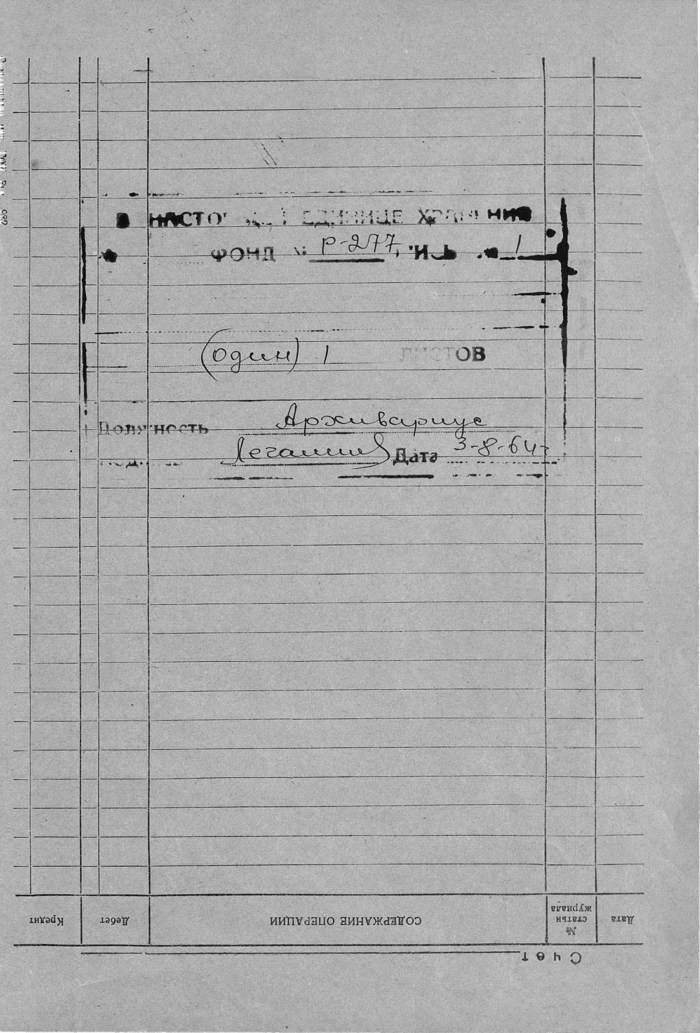 В НАСТО ЕДИНИЦЕ ХРАНЕНИЯ
ФОНД № Р-277, 1
(один) 1 ЛИСТОВ
Должность Архивариус
Дата 3-8-64
Счет
Дата № статьи журнала СОДЕРЖАНИЕ ОПЕРАЦИИ Дебет Кредит